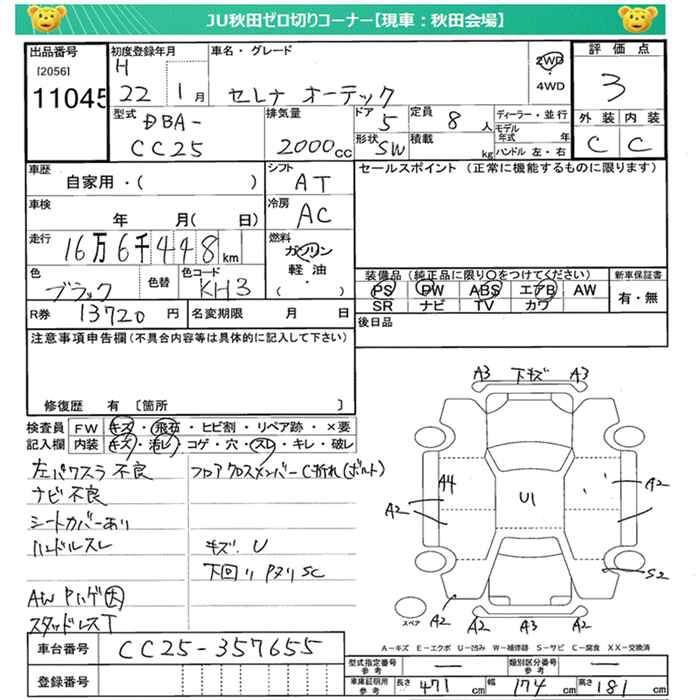 JU秋田ゼロ切りコーナー【現車：秋田会場】
出品番号
[2056]
11045
初度登録年月
H
22 1月
車名・グレード
セレナ オーテック
2WD
4WD
評価点
3
外装 内装
C C
型式
DBA-
CC25
排気量
2000cc
ドア
5
形状
SW
定員
8人
積載
kg
ディーラー・並行
モデル年式 年
ハンドル 左・右
車歴
自家用・( )
シフト
AT
セールスポイント (正常に機能するものに限ります)
車検
年 月( 日)
冷房
AC
走行
16万6千448km
燃料
ガソリン
軽油
・
( )
色
ブラック
色替
色コード
KH3
装備品 (純正品に限り○をつけてください)
PS PW ABS エアB AW
SR ナビ TV カワ
新車保証書
有・無
R券 13720円
名変期限 月 日
後日品
注意事項申告欄(不具合内容等は具体的に記入して下さい)
修復歴 有 〔箇所 〕
検査員記入欄
FW キズ・飛石・ヒビ割・リペア跡・×要
内装 キズ・汚レ・コゲ・穴・スレ・キレ・破レ
左パワスラ不良
ナビ不良
シートカバーあり
ハンドルスレ
AW Pハゲ大
スタッドレスT
フロアクロスメンバーC折れ(ボルト)
キズ. U
下回りPタリSC
A3 下キズ A3
A4
A2
U1
A2
S2
A2
スペア
A2 A2 A3 A2
A-キズ E-エクボ U-凹み W-補修跡 S-サビ C-腐食 XX-交換済
車台番号
CC25-357655
登録番号
型式指定番号 参考
—
類別区分番号 参考
—
車庫証明用 参考
長さ 471cm
幅 174cm
高さ 181cm